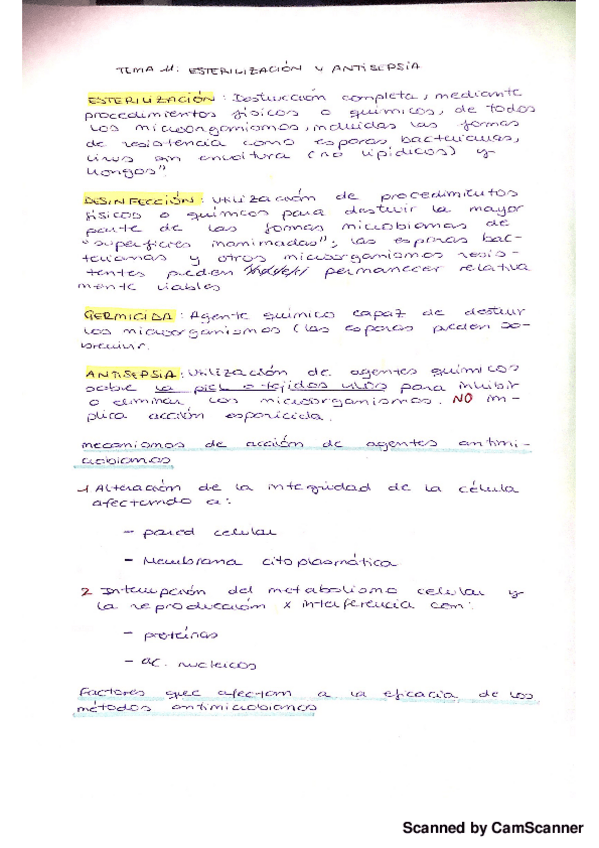 TEMA 11: ESTERILIZACIÓN Y ANTISEPSIA
ESTERILIZACIÓN: Destrucción completa, mediante
procedimientos físicos o químicos, de todos
los microorganismos, incluidas las formas
de resistencia como esporas, bacterianas,
virus sin envoltura (no lipídicos) y
hongos"
DESINFECCIÓN: Utilización de procedimientos
físicos o químicos para destruir la mayor
parte de las formas microbianas de
"superficies inanimadas"; las esporas bac-
terianas y otros microorganismos resis-
tentes pueden permanecer relativa
mente viables
GERMICIDA: Agente químico capaz de destruir
los microorganismos (las esporas pueden so-
brevivir.
ANTISEPSIA: Utilización de agentes químicos
sobre la piel o tejidos vivos para inhibir
o eliminar los microorganismos. NO im-
plica acción esporicida.
mecanismos de acción de agentes antimi-
crobianos
1 Alteración de la integridad de la célula
afectando a:
- pared celular
- Membrana citoplasmática
2 Interrupción del metabolismo celular y
la reproducción x interferencia con:
- proteínas
- ac. nucleicos
Factores que afectan a la eficacia de los
métodos antimicrobianos
Scanned by CamScanner